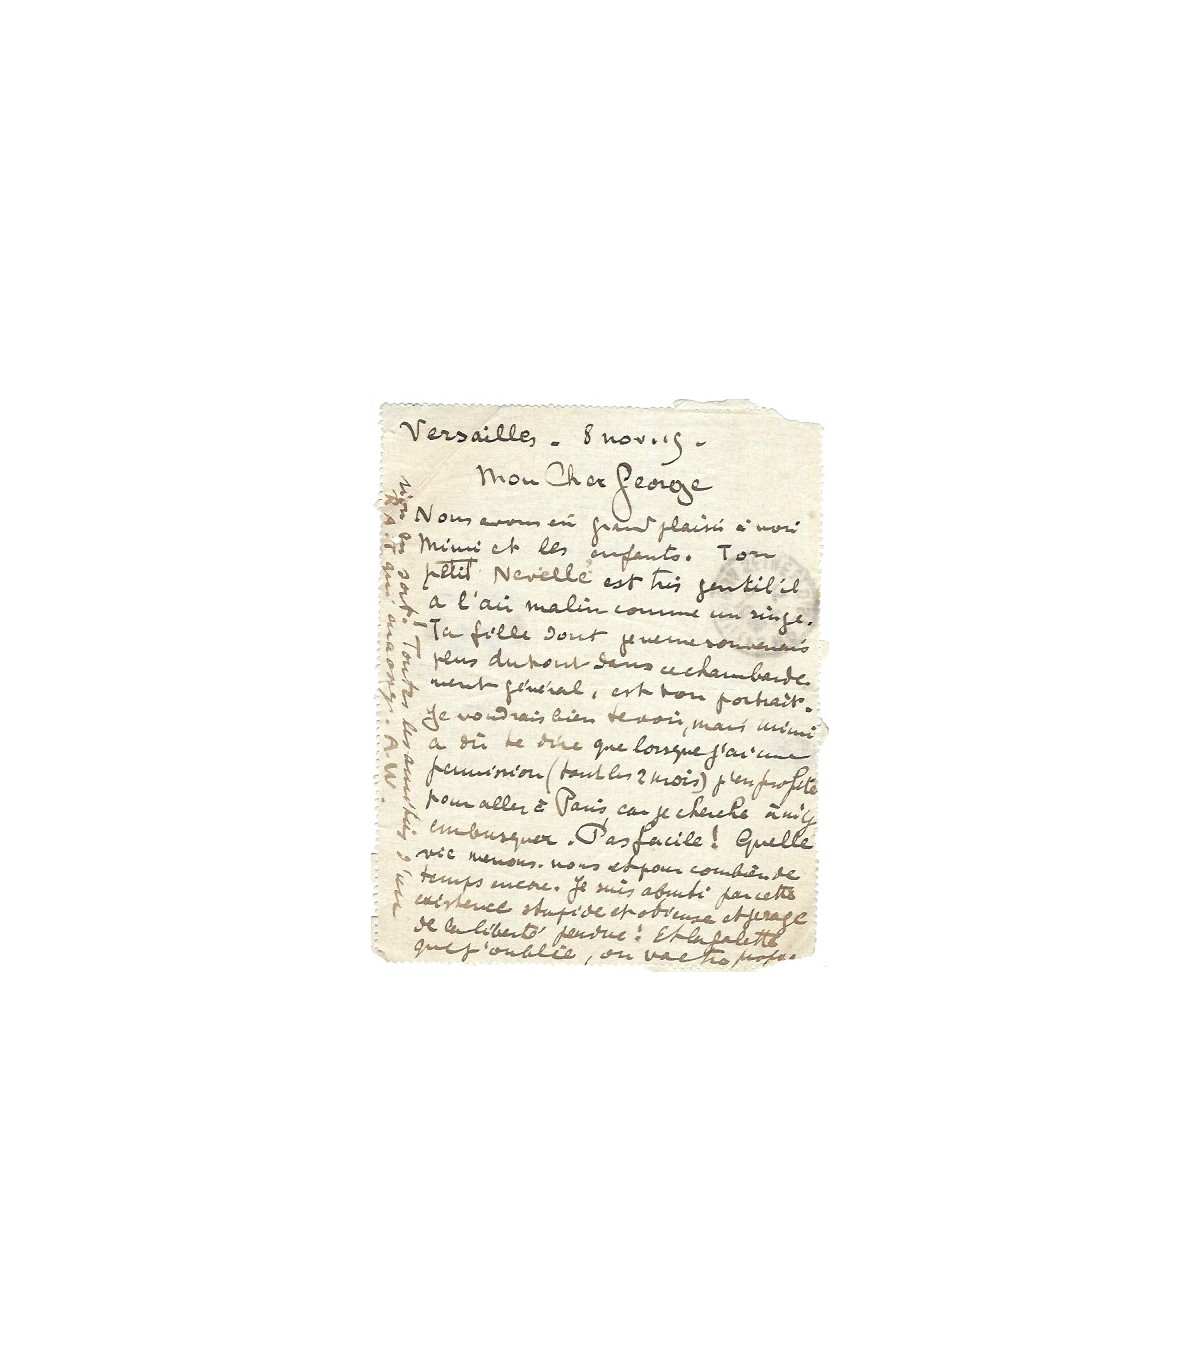 Versailles - 8 nov. 15 -
Mon Cher George
Nous avons eu grand plaisir à voir
Mimi et les enfants. Ton
petit Nevelle est très gentil il
a l'air malin comme un singe.
Ta fille dont je ne me souvenais
plus du tout dans ce chambarde-
ment général, est ton portrait.
Je voudrais bien te voir, mais Mimi
a dû te dire que lorsque j'ai une
permission (tout les 2 mois) j'en profite
pour aller à Paris, car je cherche à m'y
embusquer. Pas facile! Quelle
vie menons-nous et pour combien de
temps encore. Je suis abruti par cette
existence stupide et odieuse et je rage
de la liberté perdue! Et la galette
que j'oublie, on va être
si on en sort! Toutes les amitiés d'un
qui enrage. A.W.